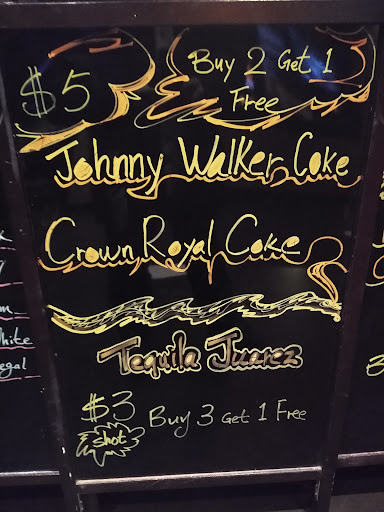 $5 Buy 2 Get 1
Free
Johnny Walker Coke
Crown Royal Coke
Tequila Juarez
$3 Buy 3 Get 1 Free
shot
hite
egal